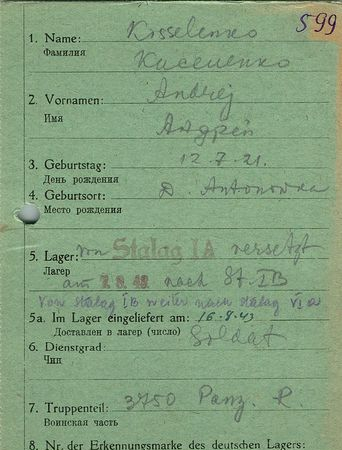 599
1. Name: Kisselenko
Фамилия Киселенко
2. Vornamen: Andrej
Имя Андрей
3. Geburtstag: 12.7.21.
День рождения
4. Geburtsort: D. Antonowka
Место рождения
5. Lager: von Stalag IA versetzt
Лагер
am 2.8.43 nach St. IB
Von Stalag IB weiter nach Stalag VI a
5a. Im Lager eingeliefert am: 16.9.43
Доставлен в лагер (число)
6. Dienstgrad: Soldat
Чин
7. Truppenteil: 3750 Panz. R.
Воинская часть
8. Nr. der Erkennungsmarke des deutschen Lagers: